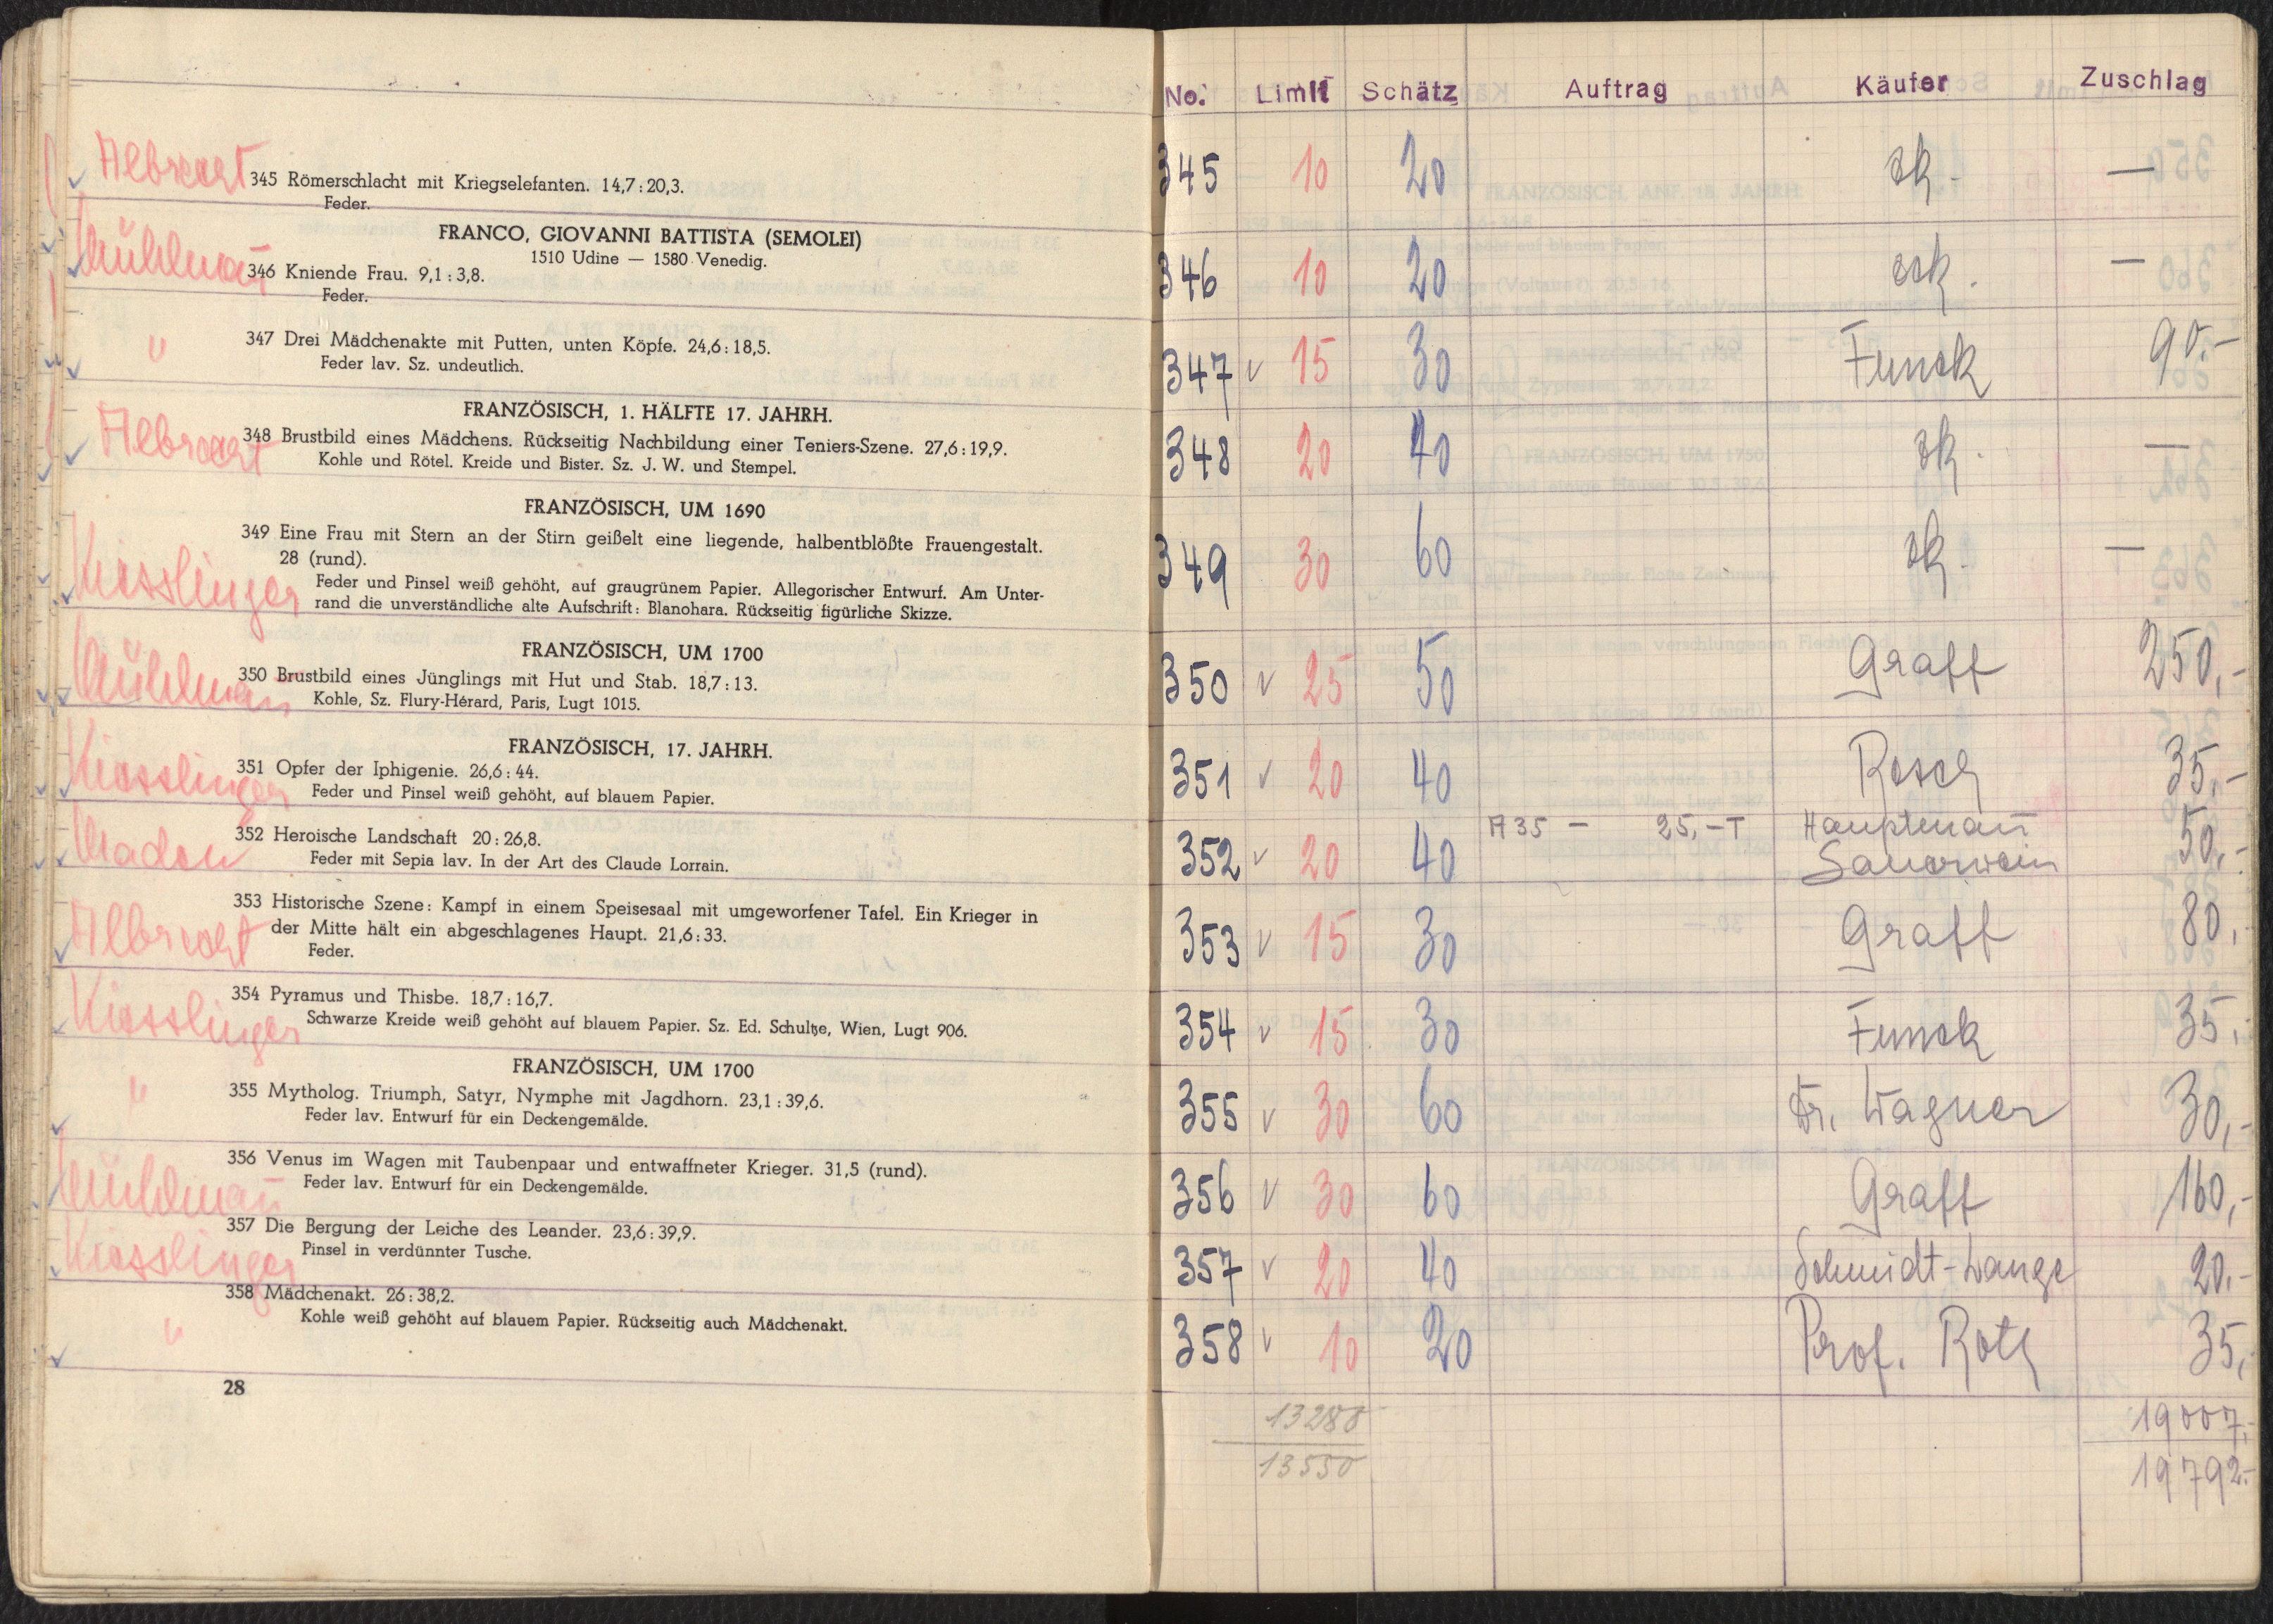 Albrecht
345 Römerschlacht mit Kriegselefanten. 14,7 : 20,3.
Feder.
FRANCO, GIOVANNI BATTISTA (SEMOLEI)
1510 Udine — 1580 Venedig.
346 Kniende Frau. 9,1 : 3,8.
Feder.
"
347 Drei Mädchenakte mit Putten, unten Köpfe. 24,6 : 18,5.
Feder lav. Sz. undeutlich.
FRANZÖSISCH, 1. HÄLFTE 17. JAHRH.
Albrecht
348 Brustbild eines Mädchens. Rückseitig Nachbildung einer Teniers-Szene. 27,6 : 19,9.
Kohle und Rötel. Kreide und Bister. Sz. J. W. und Stempel.
FRANZÖSISCH, UM 1690
349 Eine Frau mit Stern an der Stirn geißelt eine liegende, halbentblößte Frauengestalt.
28 (rund).
Kiesslinger
Feder und Pinsel weiß gehöht, auf graugrünem Papier. Allegorischer Entwurf. Am Unter-
rand die unverständliche alte Aufschrift: Blanohara. Rückseitig figürliche Skizze.
FRANZÖSISCH, UM 1700
350 Brustbild eines Jünglings mit Hut und Stab. 18,7 : 13.
Kohle, Sz. Flury-Hérard, Paris, Lugt 1015.
FRANZÖSISCH, 17. JAHRH.
Kiesslinger
351 Opfer der Iphigenie. 26,6 : 44.
Feder und Pinsel weiß gehöht, auf blauem Papier.
352 Heroische Landschaft 20 : 26,8.
Feder mit Sepia lav. In der Art des Claude Lorrain.
353 Historische Szene: Kampf in einem Speisesaal mit umgeworfener Tafel. Ein Krieger in
Albrecht
der Mitte hält ein abgeschlagenes Haupt. 21,6 : 33.
Feder.
Kiesslinger
354 Pyramus und Thisbe. 18,7 : 16,7.
Schwarze Kreide weiß gehöht auf blauem Papier. Sz. Ed. Schultze, Wien, Lugt 906.
FRANZÖSISCH, UM 1700
"
355 Mytholog. Triumph, Satyr, Nymphe mit Jagdhorn. 23,1 : 39,6.
Feder lav. Entwurf für ein Deckengemälde.
356 Venus im Wagen mit Taubenpaar und entwaffneter Krieger. 31,5 (rund).
Feder lav. Entwurf für ein Deckengemälde.
Kiesslinger
357 Die Bergung der Leiche des Leander. 23,6 : 39,9.
Pinsel in verdünnter Tusche.
358 Mädchenakt. 26 : 38,2.
"
Kohle weiß gehöht auf blauem Papier. Rückseitig auch Mädchenakt.
28
No. Limit Schätz Auftrag Käufer Zuschlag
345 10 20 zk. —
346 10 20 zck. —
347 v 15 30 Funck 90.-
348 20 40 zk. —
349 30 60 zk. —
350 v 25 50 Graff 250,-
351 v 20 40 Rosch 35,-
352 v 20 40 A 35 – 25,- T Hauptmañ Sauerwein 50,-
353 v 15 30 Graff 80,-
354 v 15 30 Funck 35,-
355 v 30 60 Dr. Wagner 30,-
356 v 30 60 Graff 160,-
357 v 20 40 Schmidt-Lange 20.-
358 v 10 20 Prof. Roth 35,-
13280 19007,-
13550 19792.-